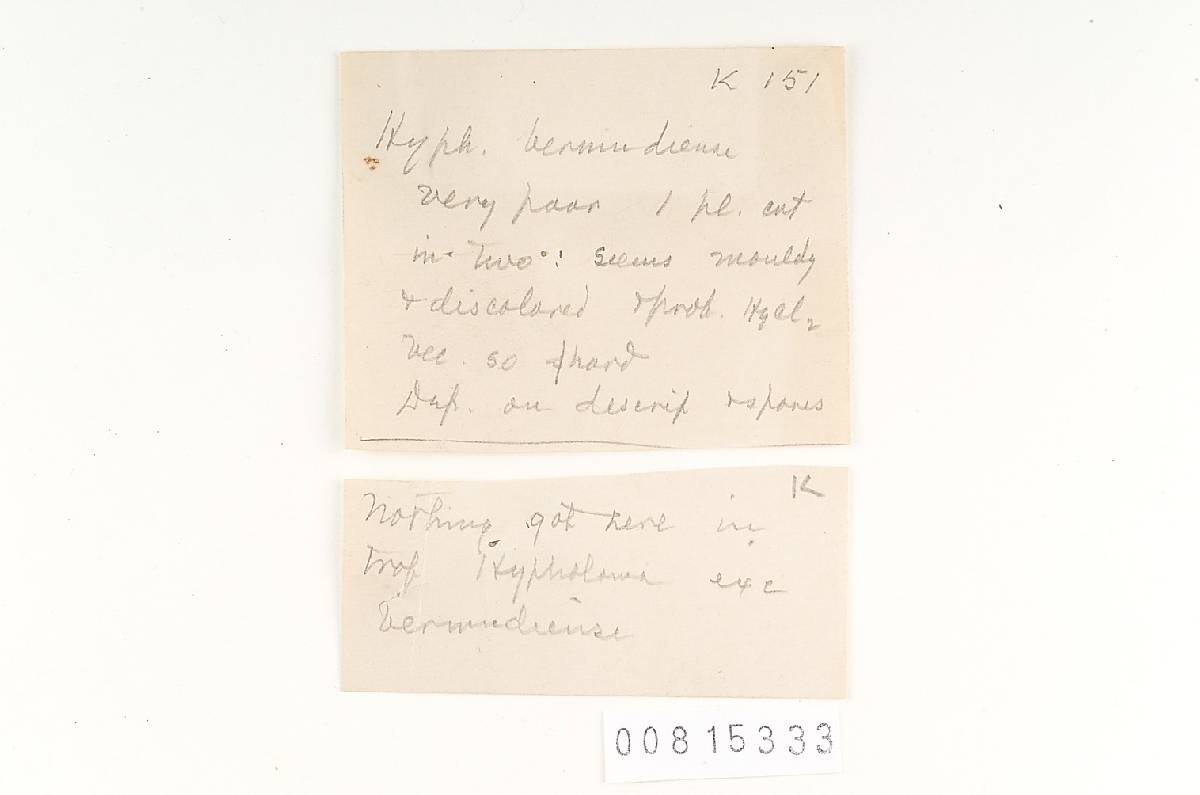 K 151
Hyph. bermudiense
very poor 1 pl. cut
in two: seems mouldy
& discolored & prob.
so hard
on descrip & spores
K
Nothing got here in
Trop Hypholoma exc
bermudiense
00815333